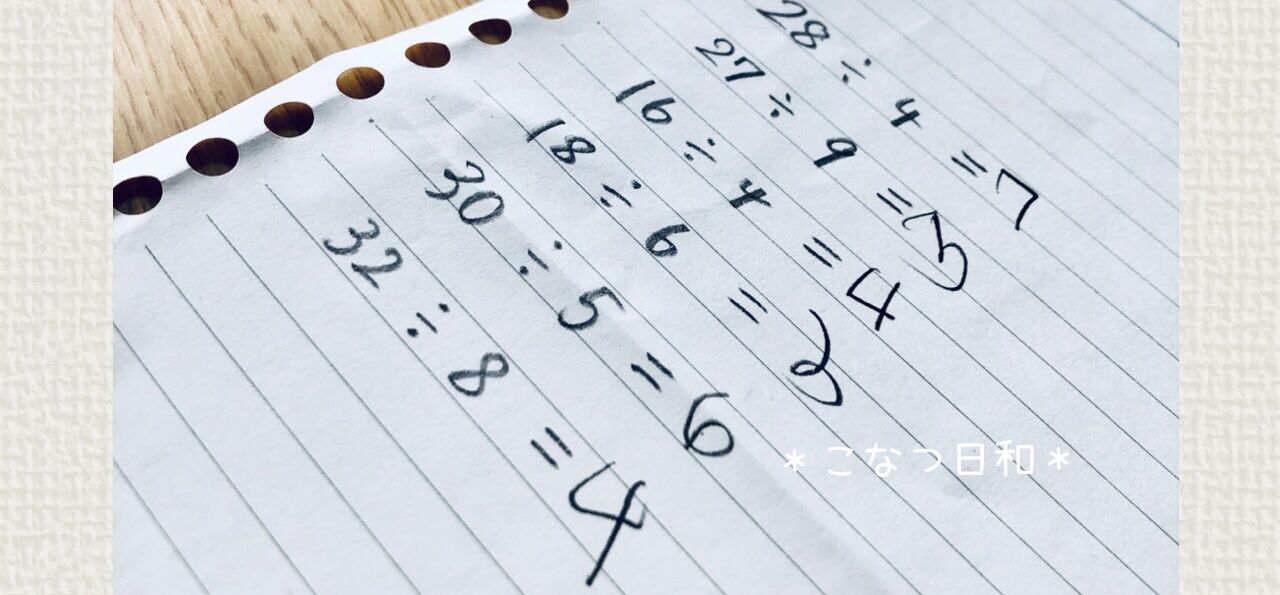 28 ÷ 4 = 7
27 ÷ 9 = 3
16 ÷ 4 = 4
18 ÷ 6 = 2
30 ÷ 5 = 6
32 ÷ 8 = 4
＊こなつ日和＊